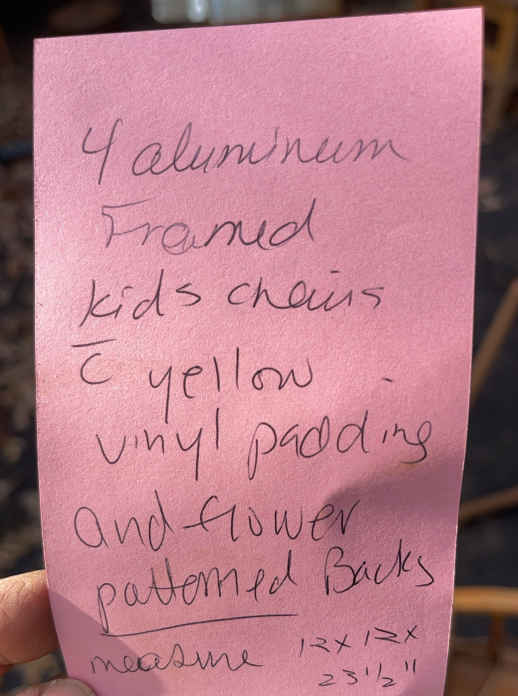 4 aluminum
Framed
kids chairs
c̄ yellow
vinyl padding
and flower
patterned Backs
measure 12x12x
23 1/2"